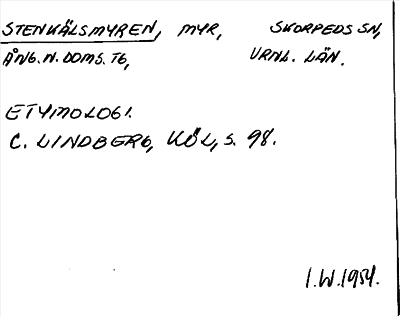 STENKÄLSMYREN, MYR, SKORPEDS SN,
ÅNG.N.DOMS.TG, VRNL. LÄN.
ETYMOLOGI.
C. LINDBERG, KÖL, S. 98.
I.W.1954.